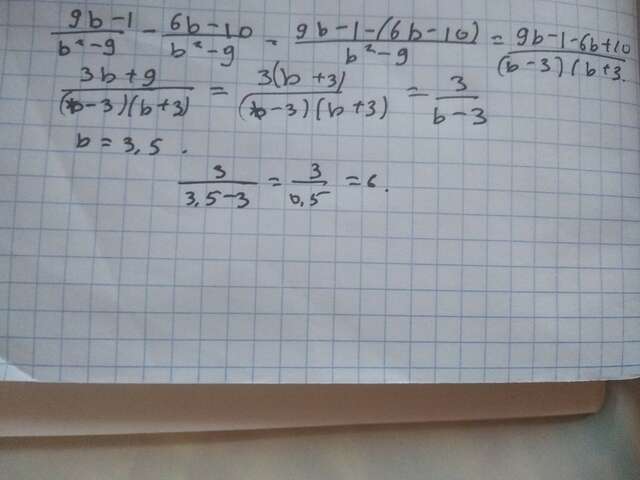 (9b-1)/(b²-9) - (6b-10)/(b²-9) = (9b-1-(6b-10))/(b²-9) = (9b-1-6b+10)/((b-3)(b+3)
(3b+9)/((b-3)(b+3)) = (3(b+3))/((b-3)(b+3)) = 3/(b-3)
b = 3,5.
3/(3,5-3) = 3/(0,5) = 6.